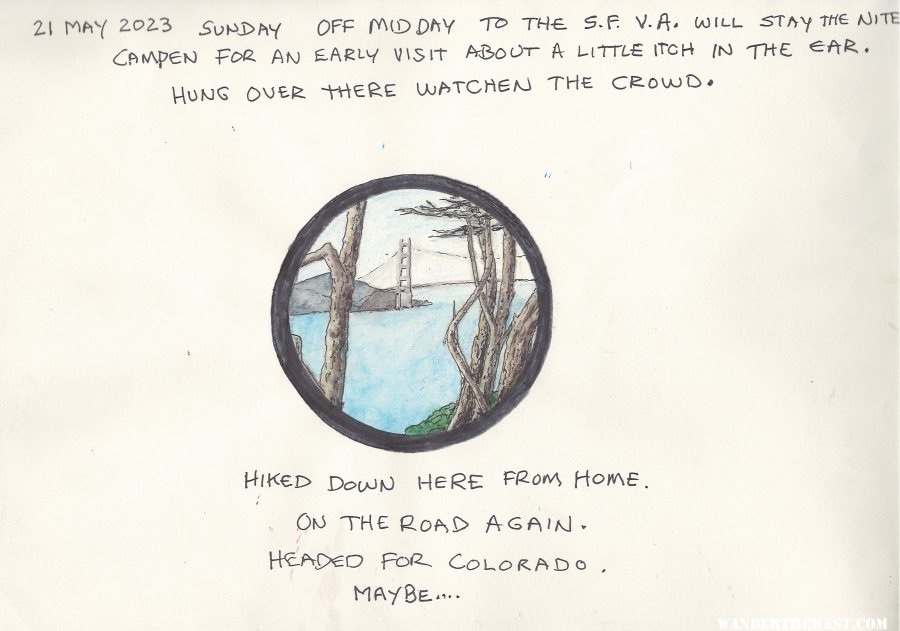 21 MAY 2023 SUNDAY OFF MIDDAY TO THE S.F. V.A. WILL STAY THE NITE
CAMPEN FOR AN EARLY VISIT ABOUT A LITTLE ITCH IN THE EAR.
HUNG OVER THERE WATCHEN THE CROWD.
HIKED DOWN HERE FROM HOME.
ON THE ROAD AGAIN.
HEADED FOR COLORADO.
MAYBE....
WANDERTHEWEST.COM